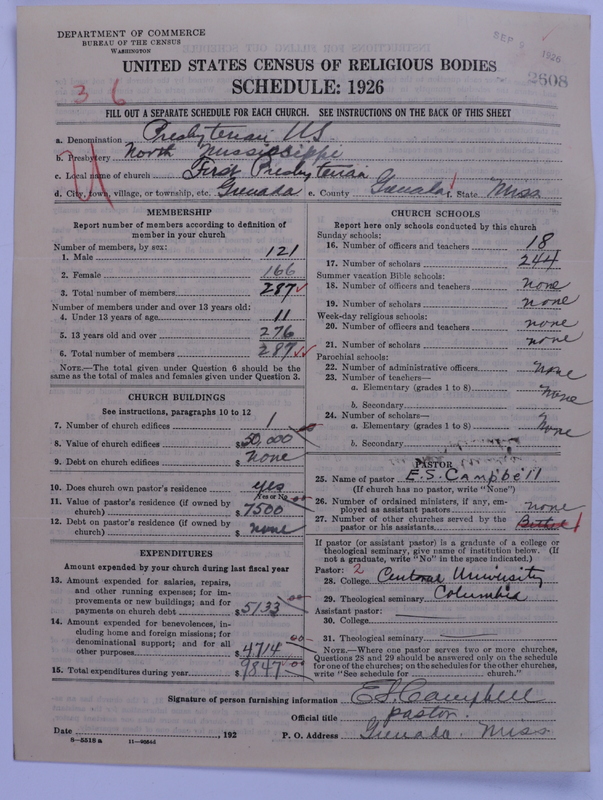 DEPARTMENT OF COMMERCE
BUREAU OF THE CENSUS
WASHINGTON
SEP 1926
2608
UNITED STATES CENSUS OF RELIGIOUS BODIES
SCHEDULE: 1926
3 6
FILL OUT A SEPARATE SCHEDULE FOR EACH CHURCH. SEE INSTRUCTIONS ON THE BACK OF THIS SHEET
a. Denomination Presbyterian US
b. Presbytery North Mississippi
c. Local name of church First Presbyterian
d. City, town, village, or township, etc. Grenada e. County Grenada f. State Miss
MEMBERSHIP
Report number of members according to definition of
member in your church
Number of members, by sex:
1. Male 121
2. Female 166
3. Total number of members 287
Number of members under and over 13 years old:
4. Under 13 years of age 11
5. 13 years old and over 276
6. Total number of members 287
NOTE.—The total given under Question 6 should be the
same as the total of males and females given under Question 3.
CHURCH BUILDINGS
See instructions, paragraphs 10 to 12
7. Number of church edifices 1
8. Value of church edifices $50,000
9. Debt on church edifices $ none
10. Does church own pastor's residence yes
Yes or No
11. Value of pastor's residence (if owned by
church) $7500
12. Debt on pastor's residence (if owned by
church) $ none
EXPENDITURES
Amount expended by your church during last fiscal year
13. Amount expended for salaries, repairs,
and other running expenses; for im-
provements or new buildings; and for
payments on church debt $5133
14. Amount expended for benevolences, in-
cluding home and foreign missions; for
denominational support; and for all
other purposes $4714
15. Total expenditures during year $9847
CHURCH SCHOOLS
Report here only schools conducted by this church
Sunday schools:
16. Number of officers and teachers 18
17. Number of scholars 244
Summer vacation Bible schools:
18. Number of officers and teachers none
19. Number of scholars none
Week-day religious schools:
20. Number of officers and teachers none
21. Number of scholars none
Parochial schools:
22. Number of administrative officers none
23. Number of teachers—
a. Elementary (grades 1 to 8) none
b. Secondary
24. Number of scholars—
a. Elementary (grades 1 to 8) none
b. Secondary
PASTOR
25. Name of pastor E.S. Campbell
(If church has no pastor, write "None")
26. Number of ordained ministers, if any, em-
ployed as assistant pastors none
27. Number of other churches served by the
pastor or his assistants 1
If pastor (or assistant pastor) is a graduate of a college or
theological seminary, give name of institution below. (If
not a graduate, write "No" in the space indicated.)
Pastor: 2
28. College Central University
29. Theological seminary Columbia
Assistant pastor:
30. College
31. Theological seminary
NOTE.—Where one pastor serves two or more churches,
Questions 28 and 29 should be answered only on the schedule
for one of the churches; on the schedules for the other churches,
write "See schedule for church."
Signature of person furnishing information E.S. Campbell
Official title pastor.
Date , 192 P. O. Address Grenada Miss
8-5518a